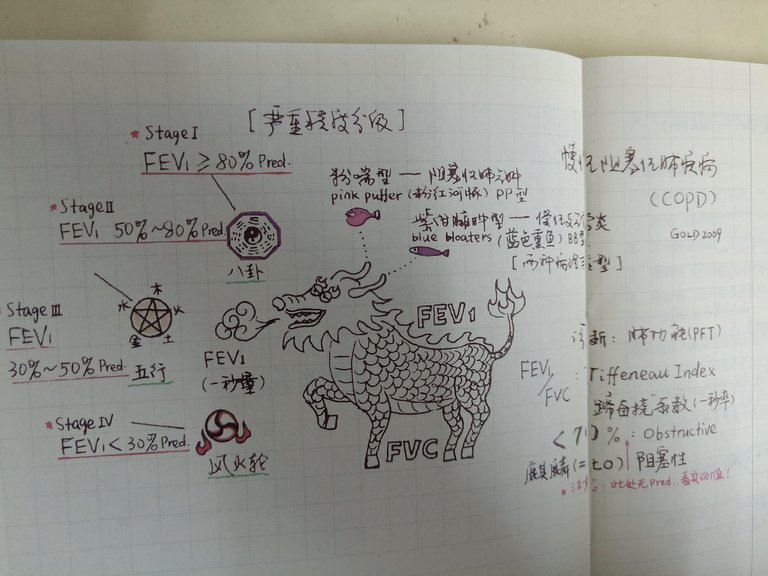 [严重程度分级]
* Stage I
FEV₁ ≥ 80% Pred.
* Stage II
FEV₁ 50%~80% Pred.
八卦
Stage III
FEV₁
30%~50% Pred.
木
水
火
金
土
五行
* Stage IV
FEV₁ < 30% Pred.
风火轮
FEV₁
(一秒量)
FEV1
FVC
粉喘型 — 阻塞性肺气肿
pink puffer (粉红河豚) PP型
紫绀臃肿型 —
blue bloaters (蓝色熏鱼) BB型
[两种病理类型]
慢性阻塞性肺疾病
(COPD)
GOLD 2009
诊断: 肺功能(PFT)
FEV₁/FVC : Tiffeneau Index
"蹄面挠"系数(一秒率)
< 70% : Obstructive
麒麟(=to) 阻塞性
此处无Pred., 看实测值!